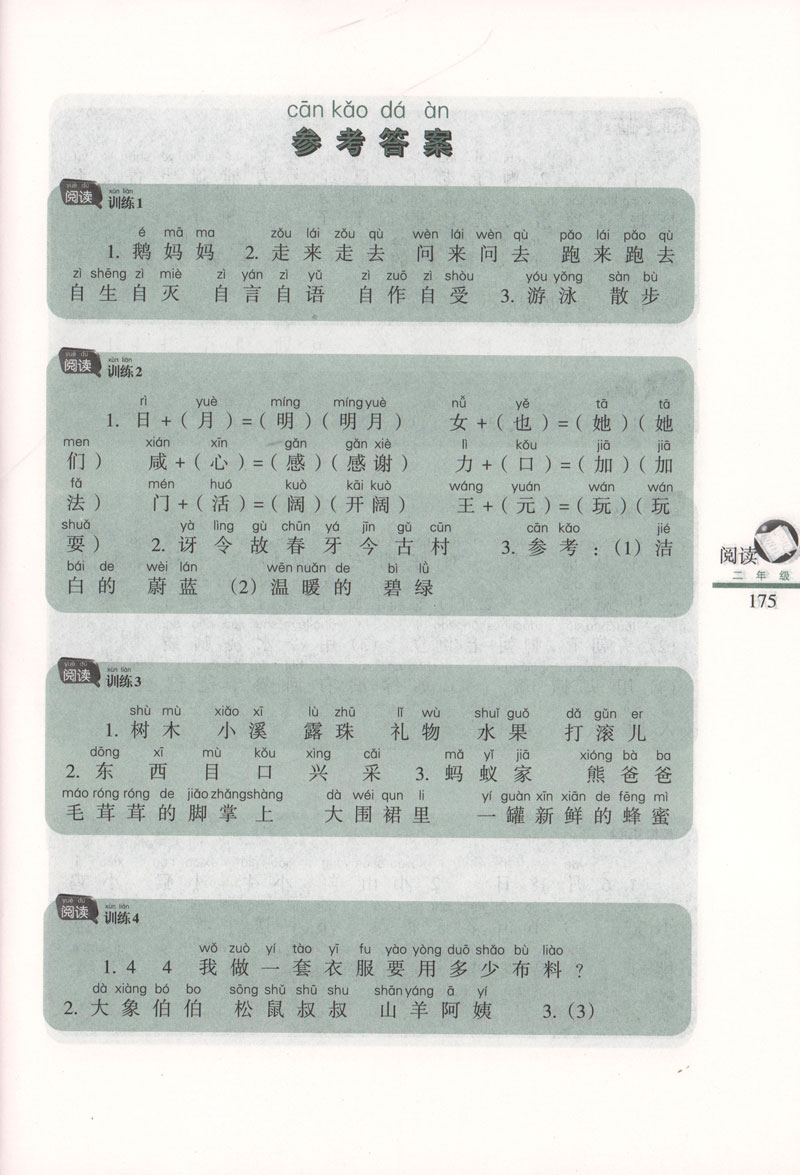 cān kǎo dá àn
参考答案
yuè dú xùn liàn
阅读 训练1
é mā ma zǒu lái zǒu qù wèn lái wèn qù pǎo lái pǎo qù
1. 鹅妈妈 2. 走来走去 问来问去 跑来跑去
zì shēng zì miè zì yán zì yǔ zì zuō zì shòu yóu yǒng sàn bù
自生自灭 自言自语 自作自受 3. 游泳 散步
yuè dú xùn liàn
阅读 训练2
rì yuè míng míng yuè nǚ yě tā tā
1. 日+(月)=(明)(明月) 女+(也)=(她)(她
men xián xīn gǎn gǎn xiè lì kǒu jiā jiā
们) 咸+(心)=(感)(感谢) 力+(口)=(加)(加
fǎ mén huó kuò kāi kuò wáng yuán wán wán
法) 门+(活)=(阔)(开阔) 王+(元)=(玩)(玩
shuǎ yà lìng gù chūn yá jīn gǔ cūn cān kǎo jié
耍) 2. 讶令故春牙今古村 3. 参考:(1)洁
bái de wèi lán wēn nuǎn de bì lǜ
白的 蔚蓝 (2)温暖的 碧绿
yuè dú xùn liàn
阅读 训练3
shù mù xiǎo xī lù zhū lǐ wù shuǐ guǒ dǎ gǔn er
1. 树木 小溪 露珠 礼物 水果 打滚儿
dōng xī mù kǒu xìng cǎi mǎ yǐ jiā xióng bà ba
2. 东 西 目 口 兴 采 3. 蚂蚁家 熊爸爸
máo róng róng de jiǎo zhǎng shàng dà wéi qun li yí guàn xīn xiān de fēng mì
毛茸茸的脚掌上 大围裙里 一罐新鲜的蜂蜜
yuè dú xùn liàn
阅读 训练4
wǒ zuò yí tào yī fu yào yòng duō shǎo bù liào
1. 4 4 我做一套衣服要用多少布料?
dà xiàng bó bo sōng shǔ shū shu shān yáng ā yí
2. 大象伯伯 松鼠叔叔 山羊阿姨 3. (3)
阅读
二年级
175